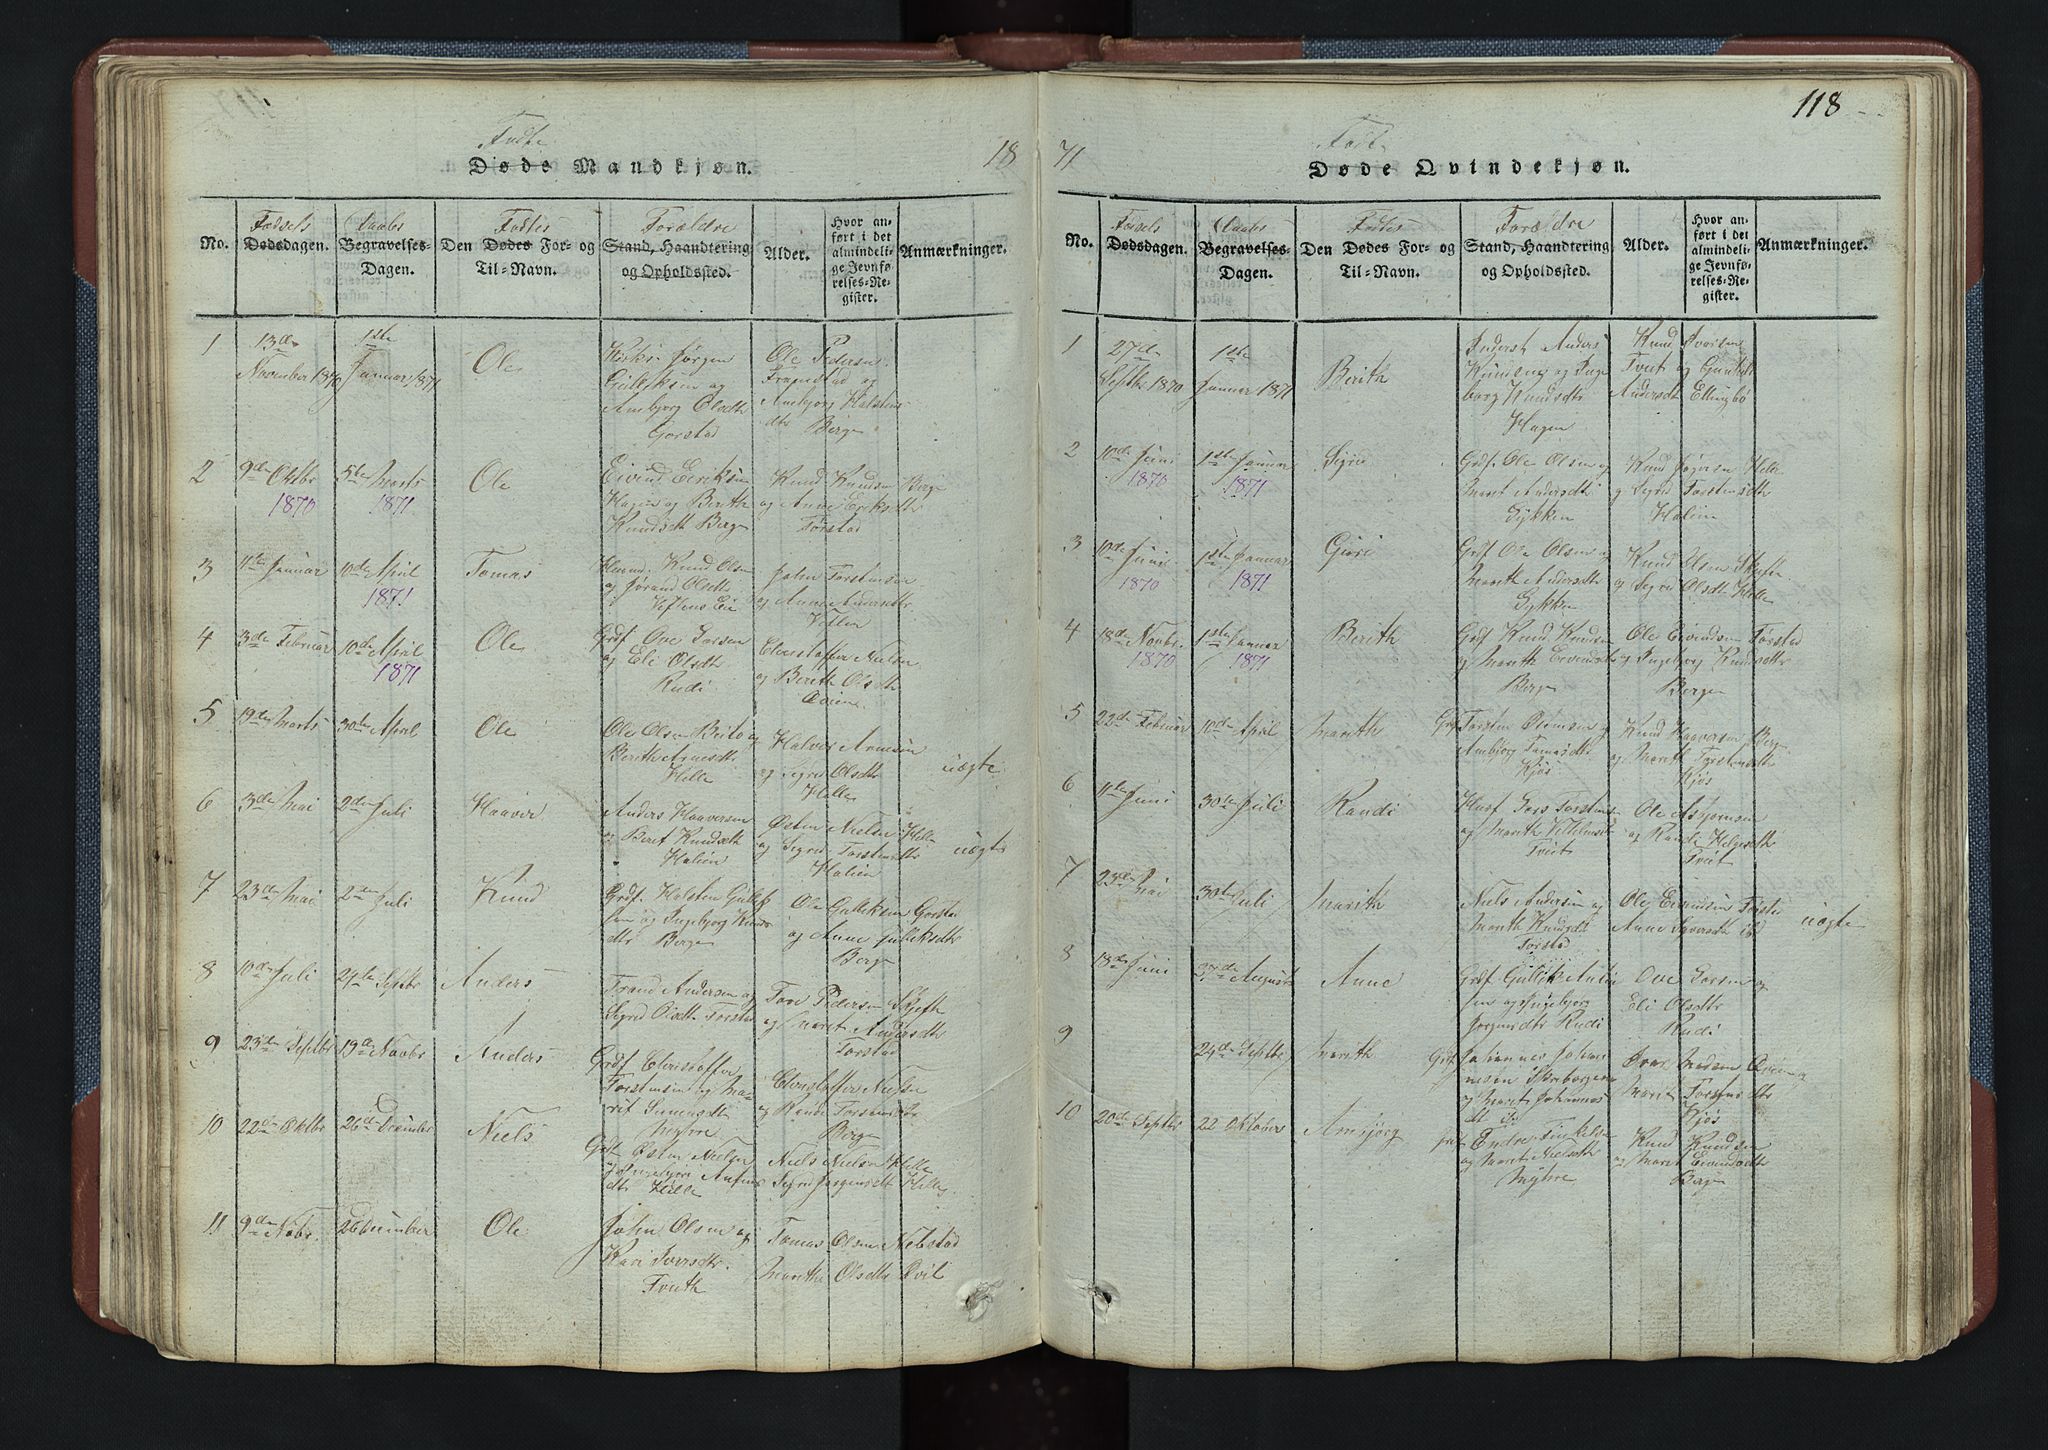 118
Fødte
Døde Mandkjøn.
18
No.
Fødsels
Dødsdagen.
Daabs
Begravelses-
Dagen.
Fødtes
Den Dødes For- og
Til-Navn.
Forældre
Stand, Haandtering
og Opholdssted.
Alder.
Hvor an-
ført i det
almindeli-
ge Jevnfø-
relses-Re-
gister.
Anmærkninger.
1
13de
November 1870
1ste
Januar 1871
Ole
Jørgen
Gulleksen og
Ambjorg Olsdtr
Gorstad
Ole Pedersen
og
Ambjorg Halstens
dtr Berge
2
9de Oktbr
1870
5te Marts
1871
Ole
Eivind Eriksen
Hagen og Berith
Knudsdtr Berge
Knud Knudsen Berge
og Anne Eriksdtr
Torstad
3
11te Januar
10de April
1871
Tomas
Knud Olsen
og Jørand Olsdtr
Eie
John Torstensen
og Anne Andersdtr
4
3de Februar
10de April
1871
Ole
Grdf Ove Torsen
og Eli Olsdtr
Rudi
Christoffer Nielsen
og Berith Olsdtr
5
19de Marts
30te April
Ole
Ole Olsen Beito og
Berith Arnesdtr
Helle
Halvor Arnesen
og Sigrid Olsdtr
Helle
uægte
6
3de Mai
2den Juli
Haaver
Anders Haaversen
og Berit Knudsdtr
Halien
Østen Nielsen Helle
og Sigrid Torstensdtr
Halien
uægte
7
23de Mai
2den Juli
Knud
Grdf. Halsten Gullik
sen og Ingebjorg Knuds
dtr Berge
Ole Gulleksen Gorstad
og Anne Gulleksdtr
Berge
8
10de Juli
24de Septbr
Anders
Trond Andersen og
Sigrid Olsdtr Torstad
Tore Pedersen Skjefte
og Marit Andersdtr
Torstad
9
23de Septbr
19de Novbr
Anders
Grdf Christoffer
Torstensen og Ma-
rit Simensdtr
Christoffer Nielsen
og Randi Torstensdtr
Berge
10
22de Oktbr
26de December
Niels
Grdf Østen Nielsen
dtr Helle
Niels Nielsen Helle
Sigrid Jørgensdtr Helle
11
9de Novbr.
26 December
Ole
John Olsen og
Kari Iversdtr.
Tveith
Tomas Olsen Nebstad
Marithe Olsdtr
71
Fødte
Døde Qvindekjøn.
No.
Fødsels
Dødsdagen.
Daabs
Begravelses-
Dagen.
Fødtes
Den Dødes For- og
Til-Navn.
Forældre
Stand, Haandtering
og Opholdssted.
Alder.
Hvor an-
ført i det
almindeli-
ge Jevnfø-
relses-Re-
gister.
Anmærkninger.
1
27de
Septbr 1870
1ste
Januar 1871
Berith
Anders
Knudsen og Inge
borg Knudsdtr
Hagen
Knud Ivarsen
Tveit og
Andersdtr Ellingbø
2
10de Juni
1870
1ste Januar
1871
Sigrid
Grdf. Ole Olsen og
Marit Andersdtr
Lykken
Knud Helle
og Sigrid Torstensdtr
Halien
3
10de Juni
1870
1ste Januar
1871
Grdf Ole Olsen og
Marith Andersdtr
Lykken
Knud Olsen Skjefte
og Sigrid Olsdtr Helle
4
18de Novbr.
1870
1ste Januar
1871
Berith
Grdf Knud Knudsen
og Marith Eivindsdtr
Berge
Ole Eivindsen Torstad
og Ingebjorg Knudsdtr
Bergen
5
22de Februar
10de April
Marith
Grdf Torsten Simensen og
Ambjorg Tomasdtr
Kjøs
Knud Haaversen Berge
og Marit Torstensdtr
Kjøs
6
11te Juni
30te Juli
Randi
Husf Torstensen
og Marith
Tveit
Ole Asbjørnsen
og Randi Helgesdtr
Tveit
7
23de Mai
30te Juli
Marith
Niels Andersen og
Marith Knudsdtr
Torstad
Ole Eivindsen Torstad
Anne ibd
uægte
8
18de Juni
27de August
Anne
Grdf Gullik
sen og Ingebjorg
Jørgensdtr Rudi
Ove Torsen og
Eli Olsdtr
Rudi
9
24de Septbr
Marith
Grdf Johannes Johan
nesen
og Marit Johannes
dtr ibd
Madsen
Marit Torstensdtr
Kjøs
10
20de Septbr
22 Oktober
Ambjørg
Endre
og Marit Nielsdtr
Knud Knudsen
og Marit Eivindsdtr
Berge